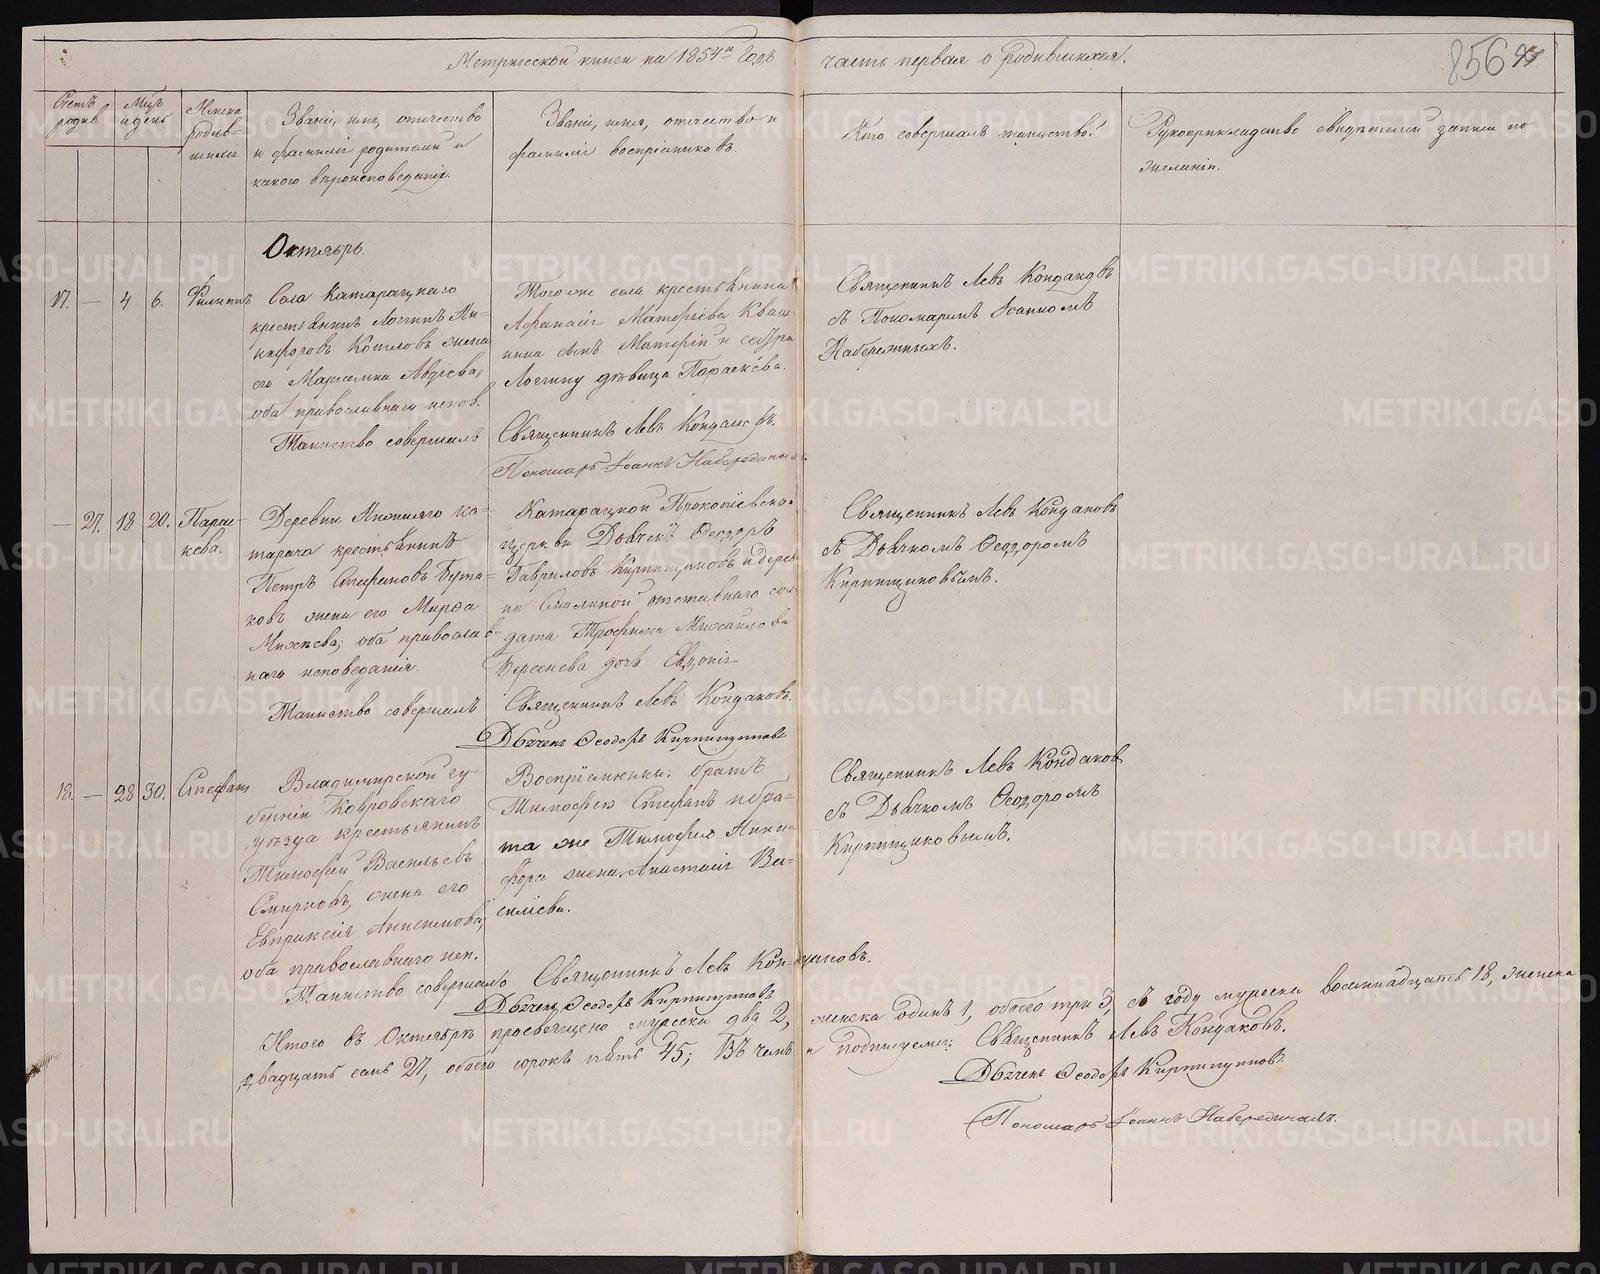 Метрической книги на 1854й Годъ часть первая о родившихся.
856
Счетъ родив.
Мцъ и день
Имена родив-
шихся
Званіе, имя, отчество
и фамилія родителей и
какого вѣроисповеданія.
Званіе, имя, отчество и
фамилія воспріемниковъ.
Кто совершалъ таинство.
Рукоприкладство свидетелей записи по
желанію.
Октябрь.
17. — 4 6. Филиппъ
Села Катарацкаго
крестьянинъ Логгинъ Ни-
кифоровъ Котловъ жена
его Марѳемна Авдіева;
оба православнаго испов.
Таинство совершалъ
Тогоже села крестьянина
Афанасія
сынъ и сестра
Логгину дѣвица Параскева.
Священникъ Левъ Кондаковъ.
Пономарь Іоаннъ Набережныхъ
Священникъ Левъ Кондаковъ
съ Пономаремъ Іоанномъ
Набережныхъ.
— 27. 18 20. Парас-
кева.
Деревни Нижняго Ка-
тарача крестьянинъ
Петръ Стефановъ Бута-
ковъ жена его Марѳа
Михѣева; оба православ-
наго исповеданія.
Таинство совершалъ
Катарацкой Прокопіевской
церкви Дьячекъ Ѳеодоръ
Гавриловъ Кирпищиковъ и дерев-
ни отставнаго сол-
дата Трофима Михайлова
Берсенева дочь Евдокія
Священникъ Левъ Кондаковъ.
Дьячекъ Ѳеодоръ Кирпищиковъ
Священникъ Левъ Кондаковъ
съ Дьячкомъ Ѳеодоромъ
Кирпищиковымъ.
18. — 28 30. Стефанъ
Владимирской гу-
берніи Ковровскаго
уѣзда крестьянинъ
Тимофей Васильевъ
Смирновъ, жена его
Евпраксія Анисимова,
оба православнаго исп.
Таинство совершалъ
Воспріемники: братъ
Тимофею Стефанъ и бра-
та же Тимофею Ники-
фора жена Анастасія Ва-
силіева.
Священникъ Левъ Кондаковъ.
Дьячекъ Ѳеодоръ Кирпищиковъ
Священникъ Левъ Кондаковъ
съ Дьячкомъ Ѳеодоромъ
Кирпищиковымъ.
Итого въ Октябрѣ просвящено мужеска два 2, женска одинъ 1, обоего три 3, съ году мужеска восемнадцать 18, женска
двадцать семь 27, обоего сорокъ пять 45; Въ чемъ и подписуемъ: Священникъ Левъ Кондаковъ.
Дьячекъ Ѳеодоръ Кирпищиковъ.
Пономарь Іоаннъ Набережныхъ.
METRIKI.GASO-URAL.RU